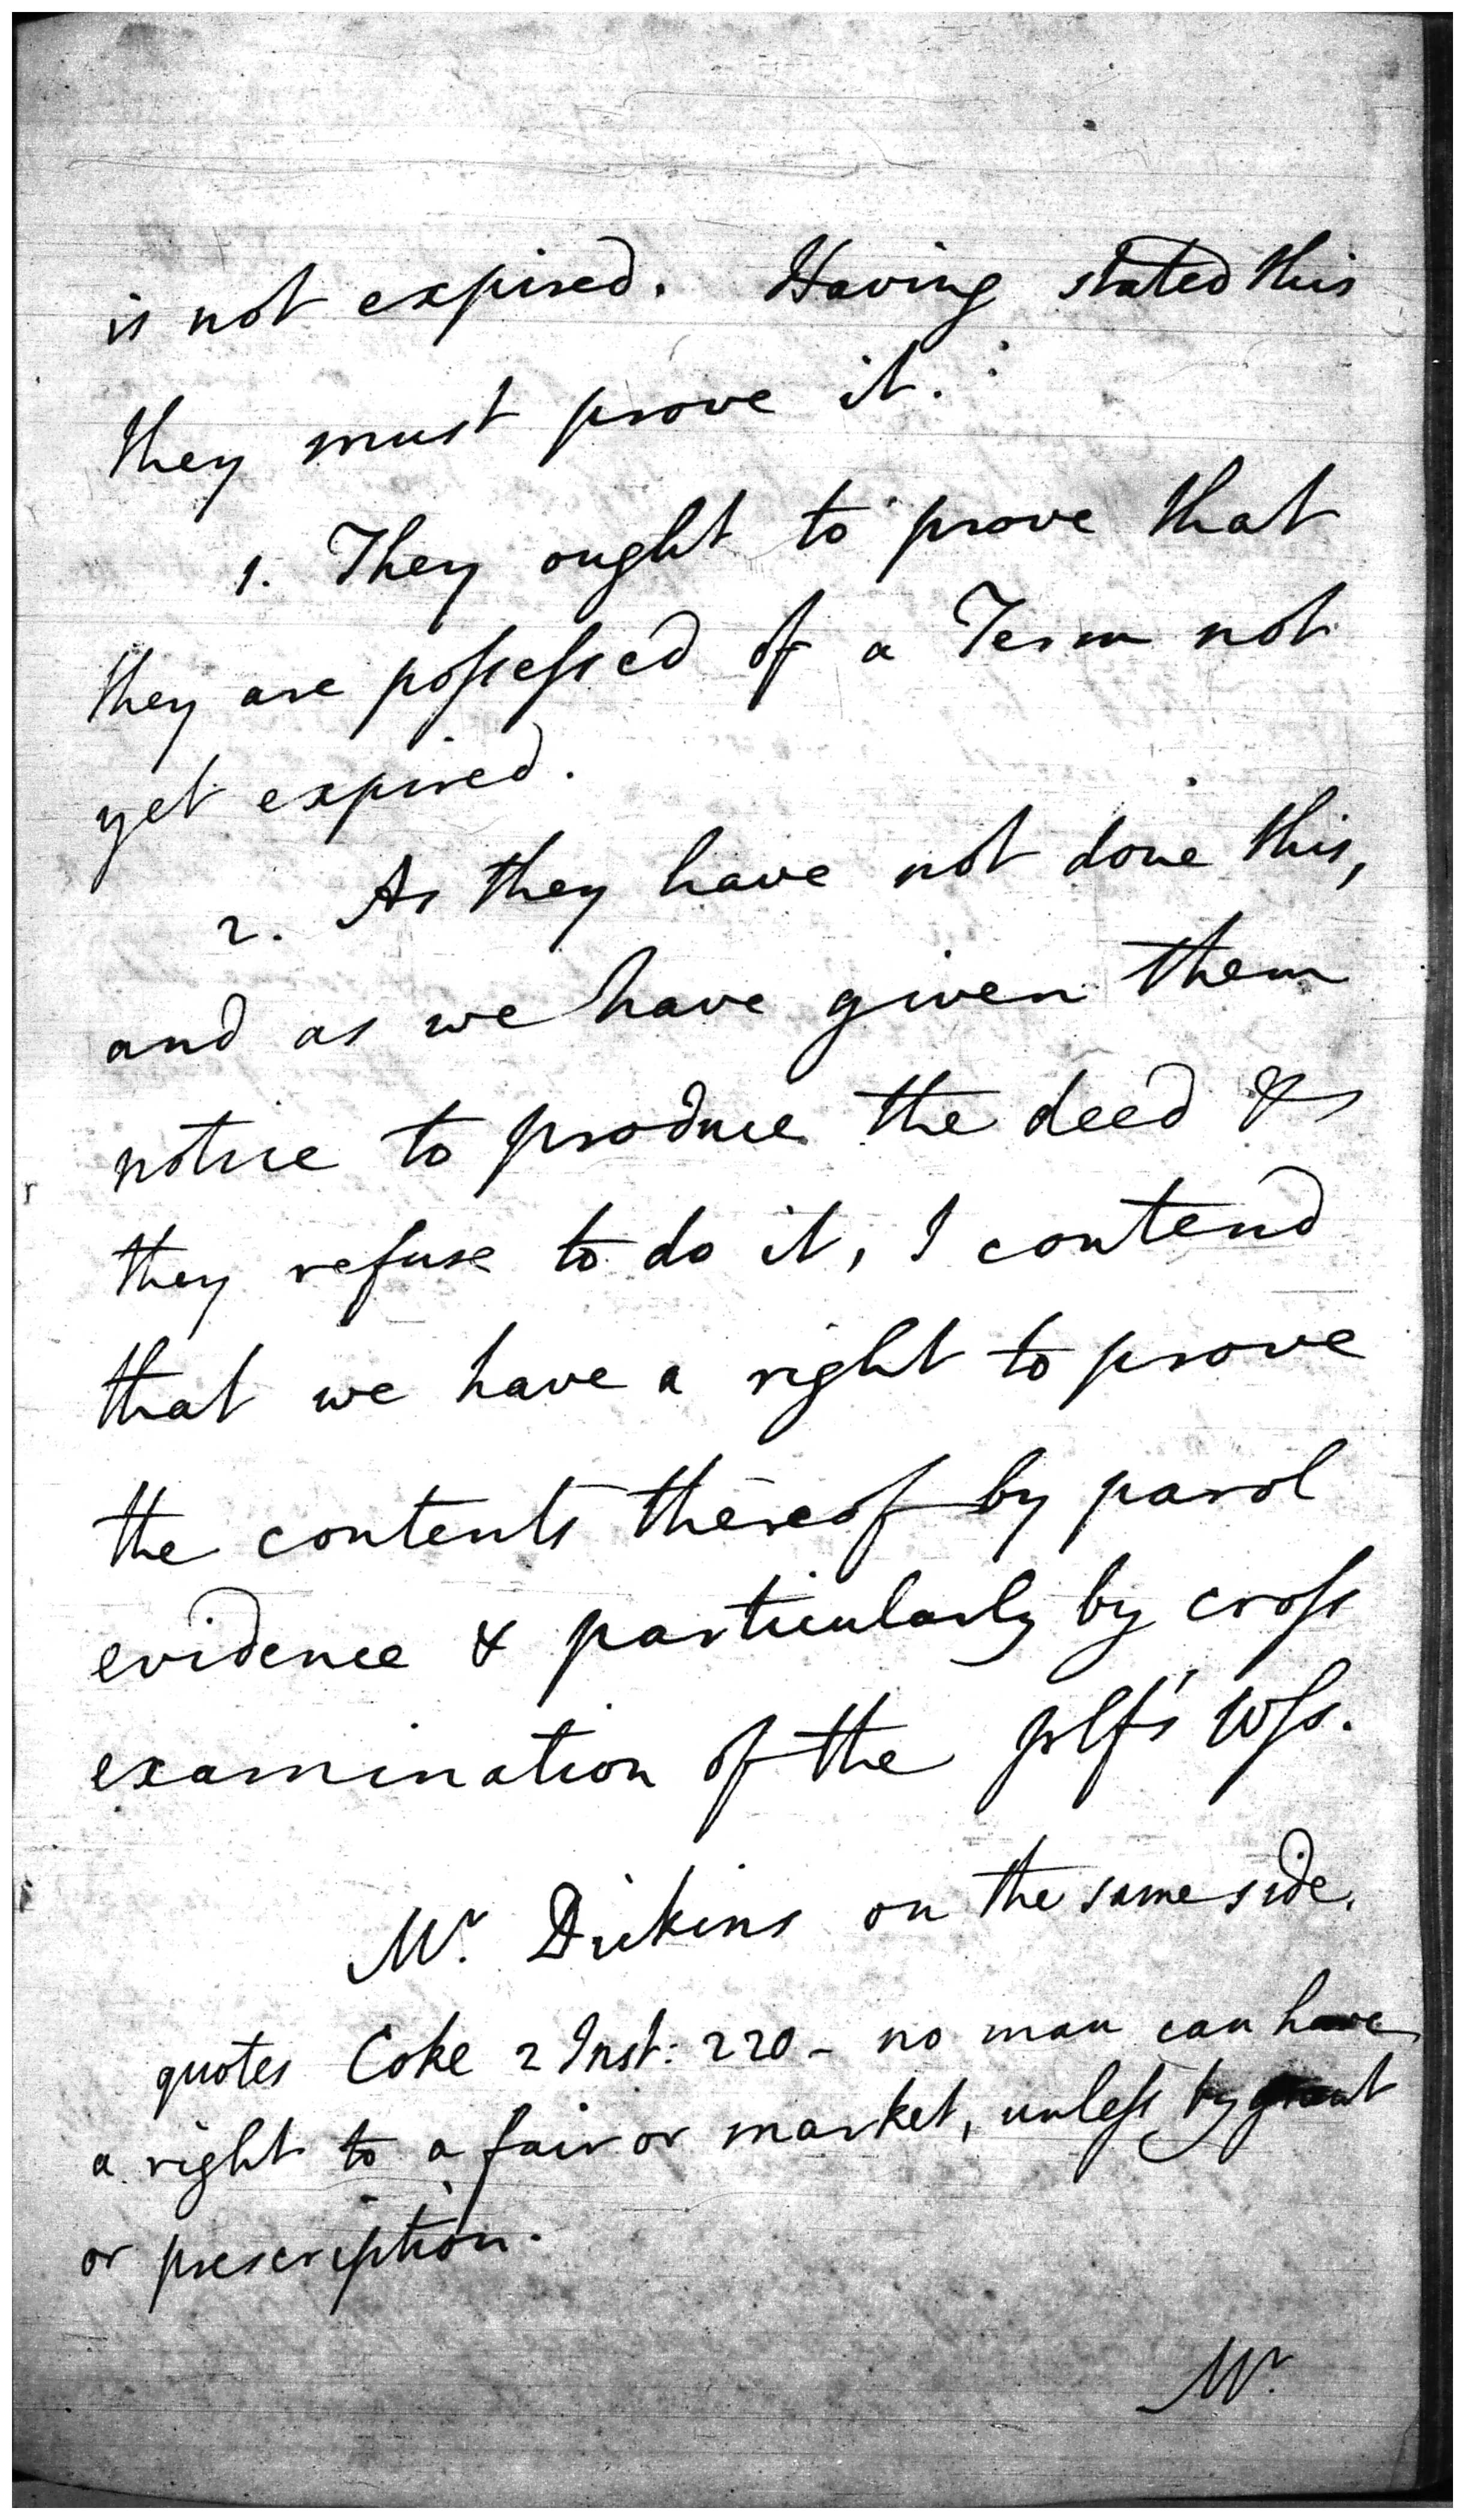 is not expired. Having stated this
they must prove it.
1. They ought to prove that
they are possessed of a Term not
yet expired.
2. As they have not done this,
and as we have given them
notice to produce the deed &
they refuse to do it, I contend
that we have a right to prove
the contents thereof by parol
evidence & particularly by cross
examination of the plf's wss.
Mr. Dickins on the same side.
quotes Coke 2 Inst: 220 - no man can have
a right to a fair or market, unless by grant
or prescription.
Mr.